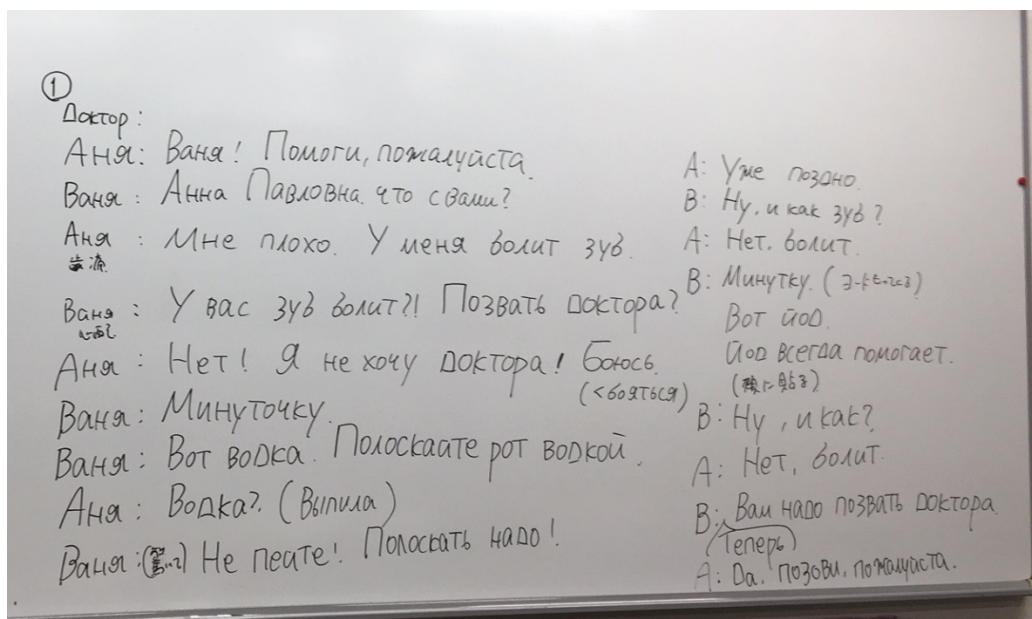 ①
Доктор:
Аня: Ваня! Помоги, пожалуйста.
Ваня: Анна Павловна. что с Вами?
Аня: Мне плохо. У меня болит зуб.
Ваня: У вас зуб болит?! Позвать доктора?
Аня: Нет! Я не хочу доктора! Боюсь.
(<бояться)
Ваня: Минуточку.
Ваня: Вот водка. Полоскаите рот водкой.
Аня: Водка?. (Выпила)
Ваня: Не пеите! Полоскать надо!
А: Уже поздно.
В: Ну, и как зуб?
А: Нет. болит.
В: Минутку.
Вот йод.
Йод всегда помогает.
В: Ну, и как?
А: Нет, болит.
В: Вам надо позвать доктора
(Теперь)
А: Да. позови, пожалуиста.